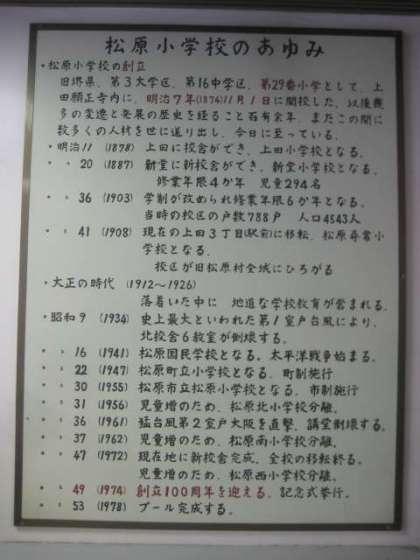 松原小学校のあゆみ
・松原小学校の創立
旧堺県、第3大学区、第16中学区、第29番小学として、上
田願正寺内に、明治7年(1874)11月1日に開校した。以後幾
多の変遷と発展の歴史を経ること百有余年、またこの間に
数多くの人材を世に送り出し、今日に至っている。
・明治11 (1878) 上田に校舎ができ、上田小学校となる。
・〃 20 (1887) 新堂に新校舎ができ、新堂小学校となる。
修業年限4か年 児童294名
・〃 36 (1903) 学制が改められ修業年限6か年となる。
当時の校区の戸数788戸 人口4543人
・〃 41 (1908) 現在の上田3丁目(駅前)に移転、松原尋常小
学校となる。
校区が旧松原村全域にひろがる
・大正の時代 (1912〜1926)
落着いた中に 地道な学校教育が営まれる。
・昭和9 (1934) 史上最大といわれた第1室戸台風により、
北校舎6教室が倒壊する。
・〃 16 (1941) 松原国民学校となる。太平洋戦争始まる。
・〃 22 (1947) 松原町立小学校となる。町制施行
・〃 30 (1955) 松原市立松原小学校となる。市制施行
・〃 31 (1956) 児童増のため、松原北小学校分離。
・〃 36 (1961) 猛台風第2室戸大阪を直撃、講堂倒壊する。
・〃 37 (1962) 児童増のため、松原南小学校分離。
・〃 47 (1972) 現在地に新校舎完成、全校の移転終る。
児童増のため、松原西小学校分離。
・〃 49 (1974) 創立100周年を迎える。記念式挙行。
・〃 53 (1978) プール完成する。